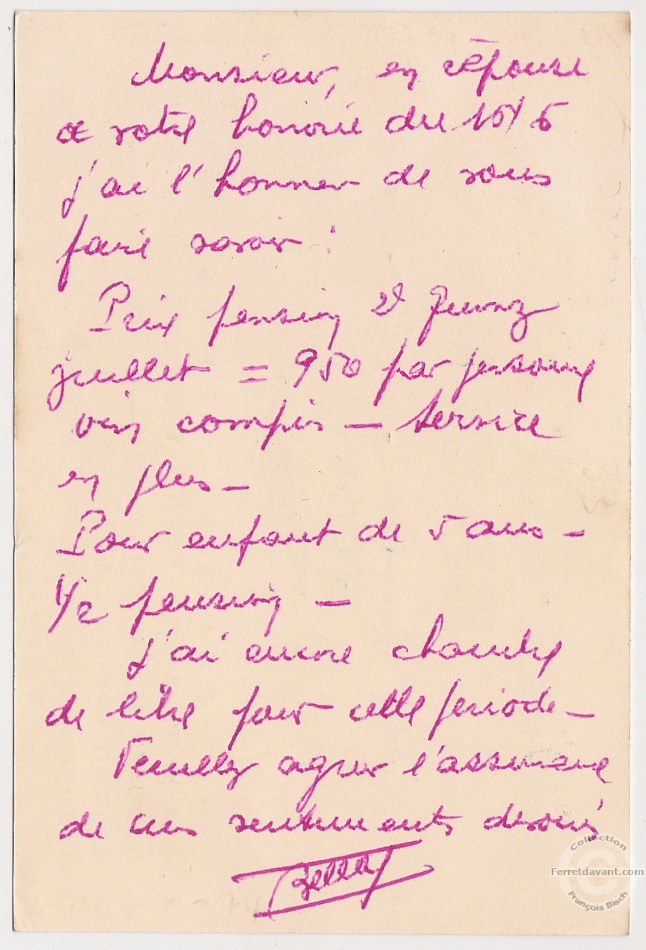 Monsieur, en réponse
à votre honorée du 10/6
j'ai l'honneur de vous
faire savoir :
Prix pension 2è quinz
juillet = 950 par personne
vin compris — Service
en plus —
Pour enfant de 5 ans —
1/2 pension —
J'ai encore chambre
de libre pour cette période —
Veuillez agréer l'assurance
de mes sentiments dévoués
Collection
Ferretdavant.com
François Bisch